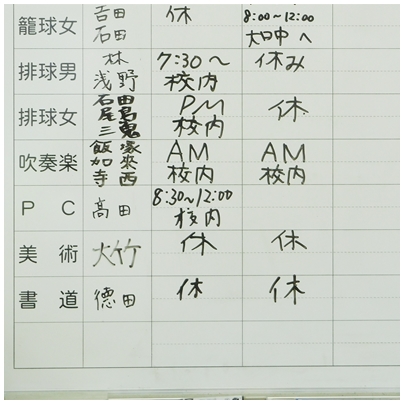 籠球女 吉田 休 8:00~12:00
石田 大口中へ
排球男 林 7:30~ 休み
浅野 校内
排球女 石尾三 田島鬼 PM 休
校内
吹奏楽 飯加寺 塚來西 AM AM
校内 校内
PC 高田 8:30~12:00
校内
美術 大竹 休 休
書道 德田 休 休